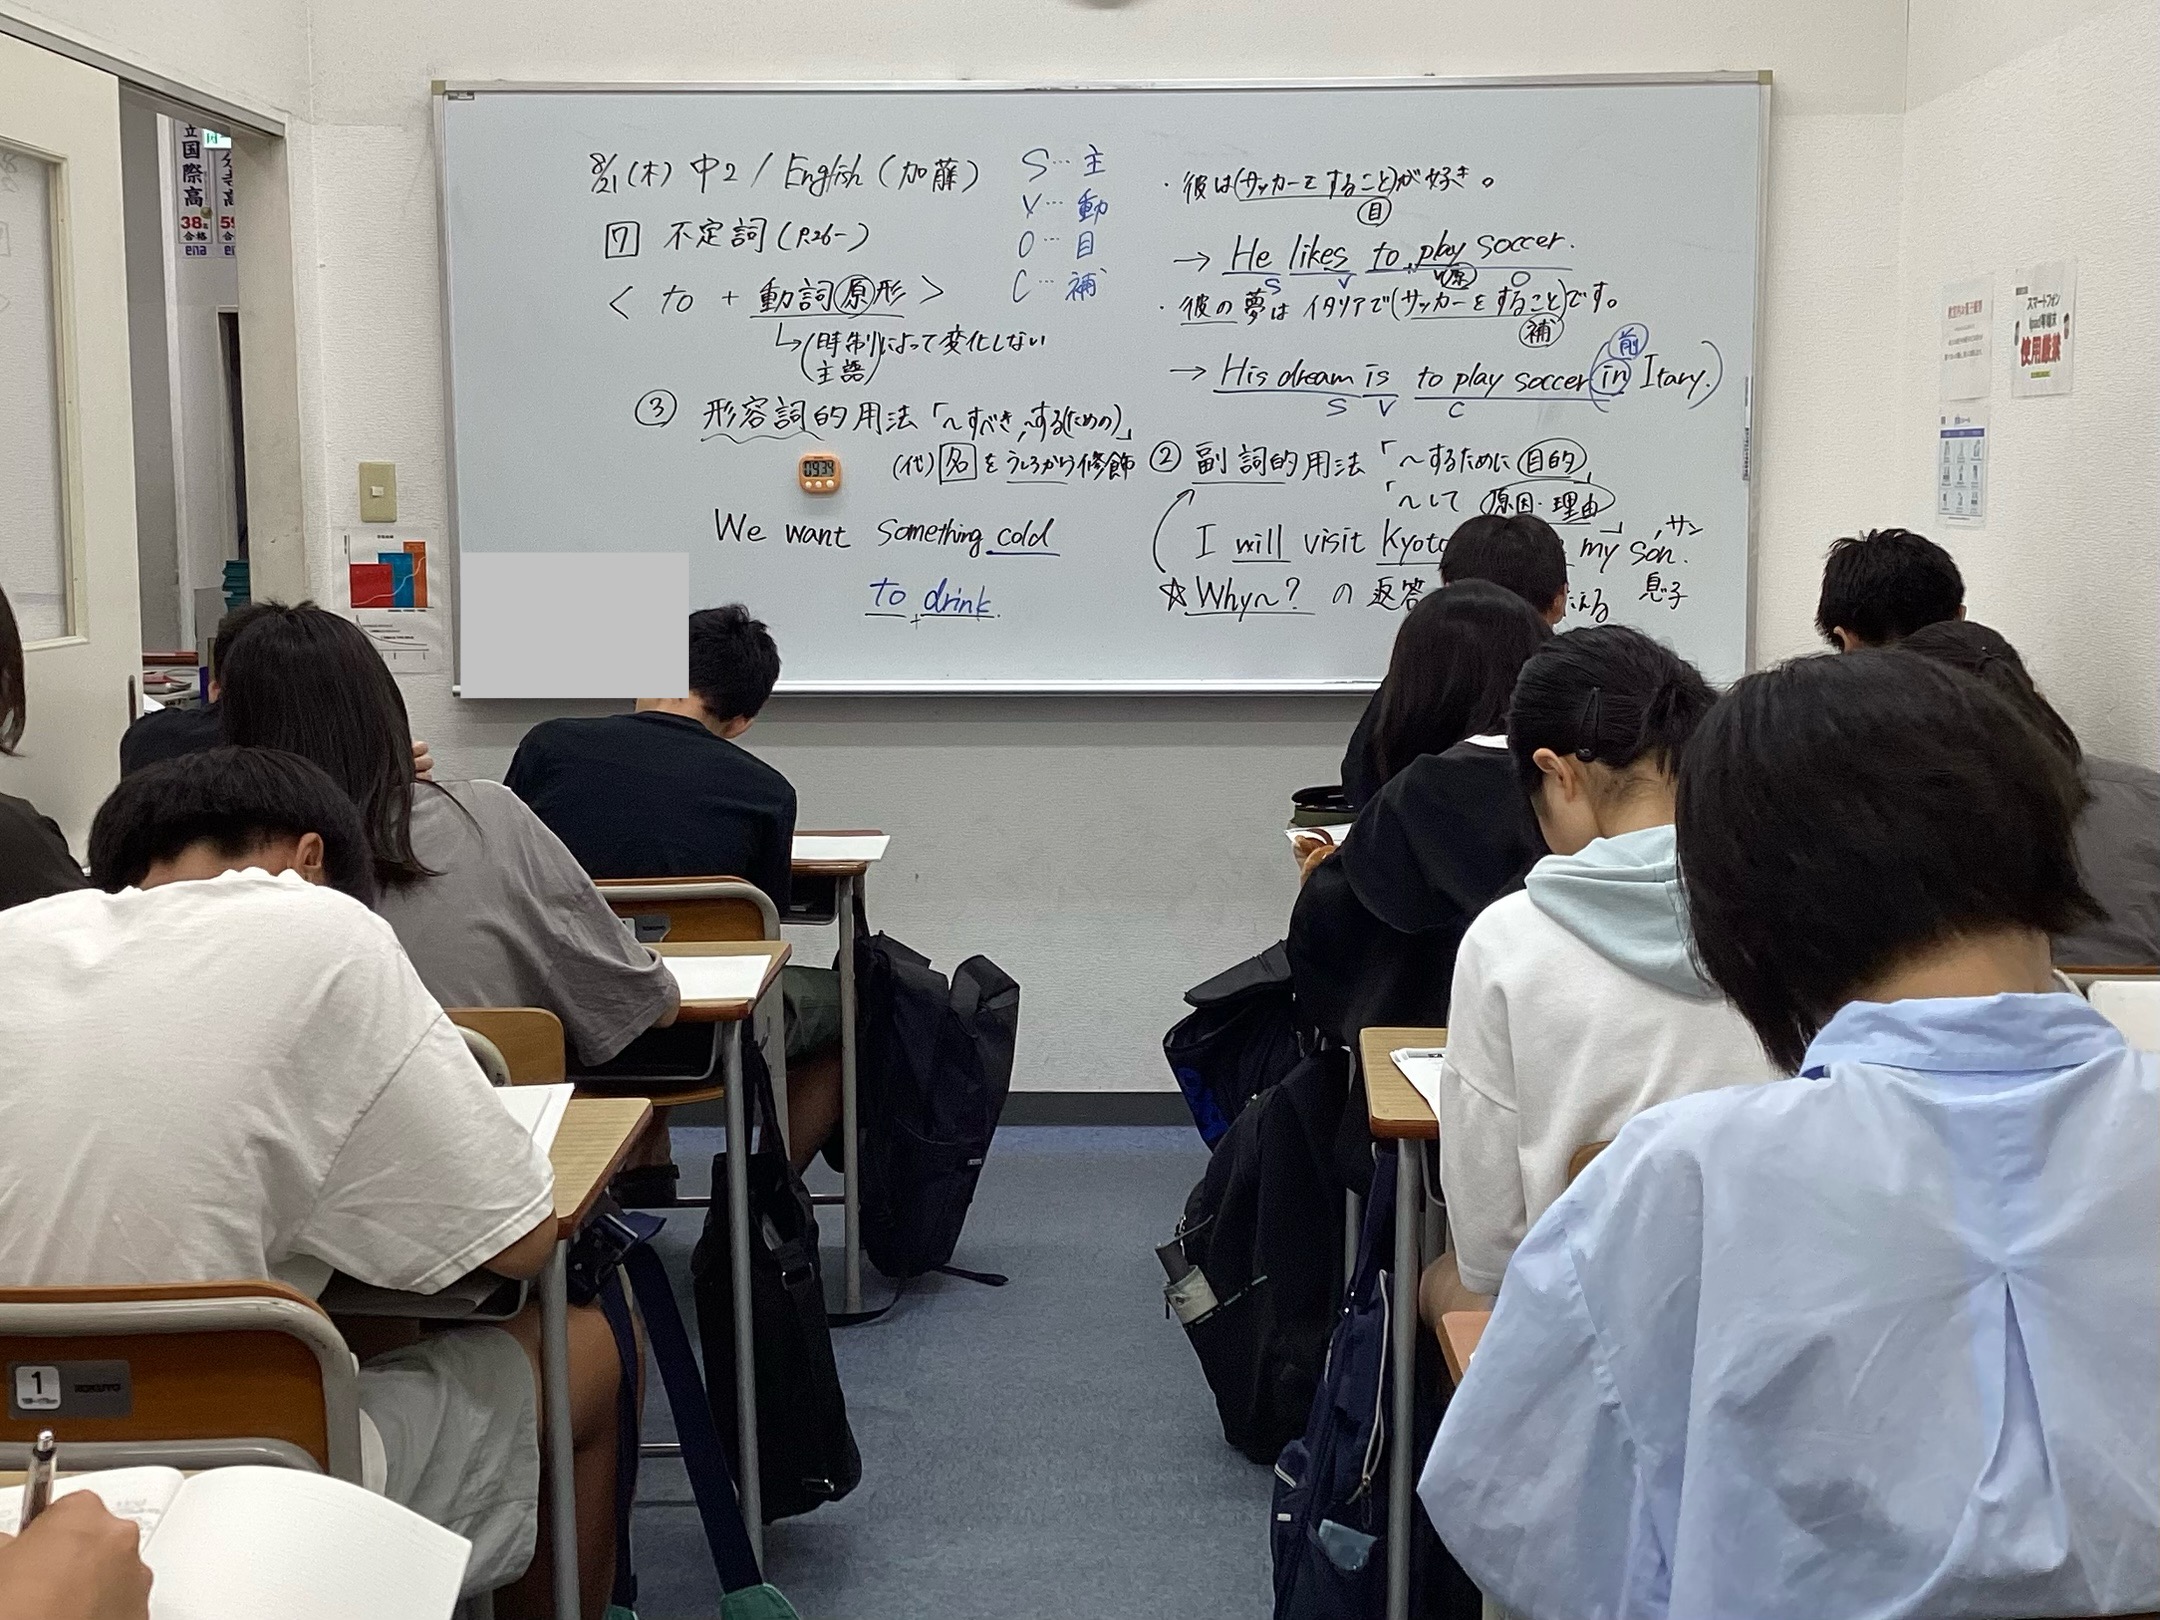 8/21(木) 中2 / English (加藤)
7 不定詞 (P.26~)
< to + 動詞原形 >
↳(時制)によって変化しない
(主語)
S…主
V…動
O…目
C…補
・彼は(サッカーをすること)が好き。
目
→ He likes to play soccer.
S V 原 O
・彼の夢はイタリアで(サッカーをすること)です。
補
前
→ His dream is to play soccer (in Itary.)
S V C
③ 形容詞的用法「~すべき,~する(ための)」
(代)名をうしろから修飾
We want something cold
to drink.
② 副詞的用法「~するために 目的」
「~して 原因・理由」
I will visit Kyoto my son.
サン
息子
☆Why~?の返答
える
0934
立国際高
38名
合格
ena
合格
スマートフォン
使用厳禁
1
KOKUYO